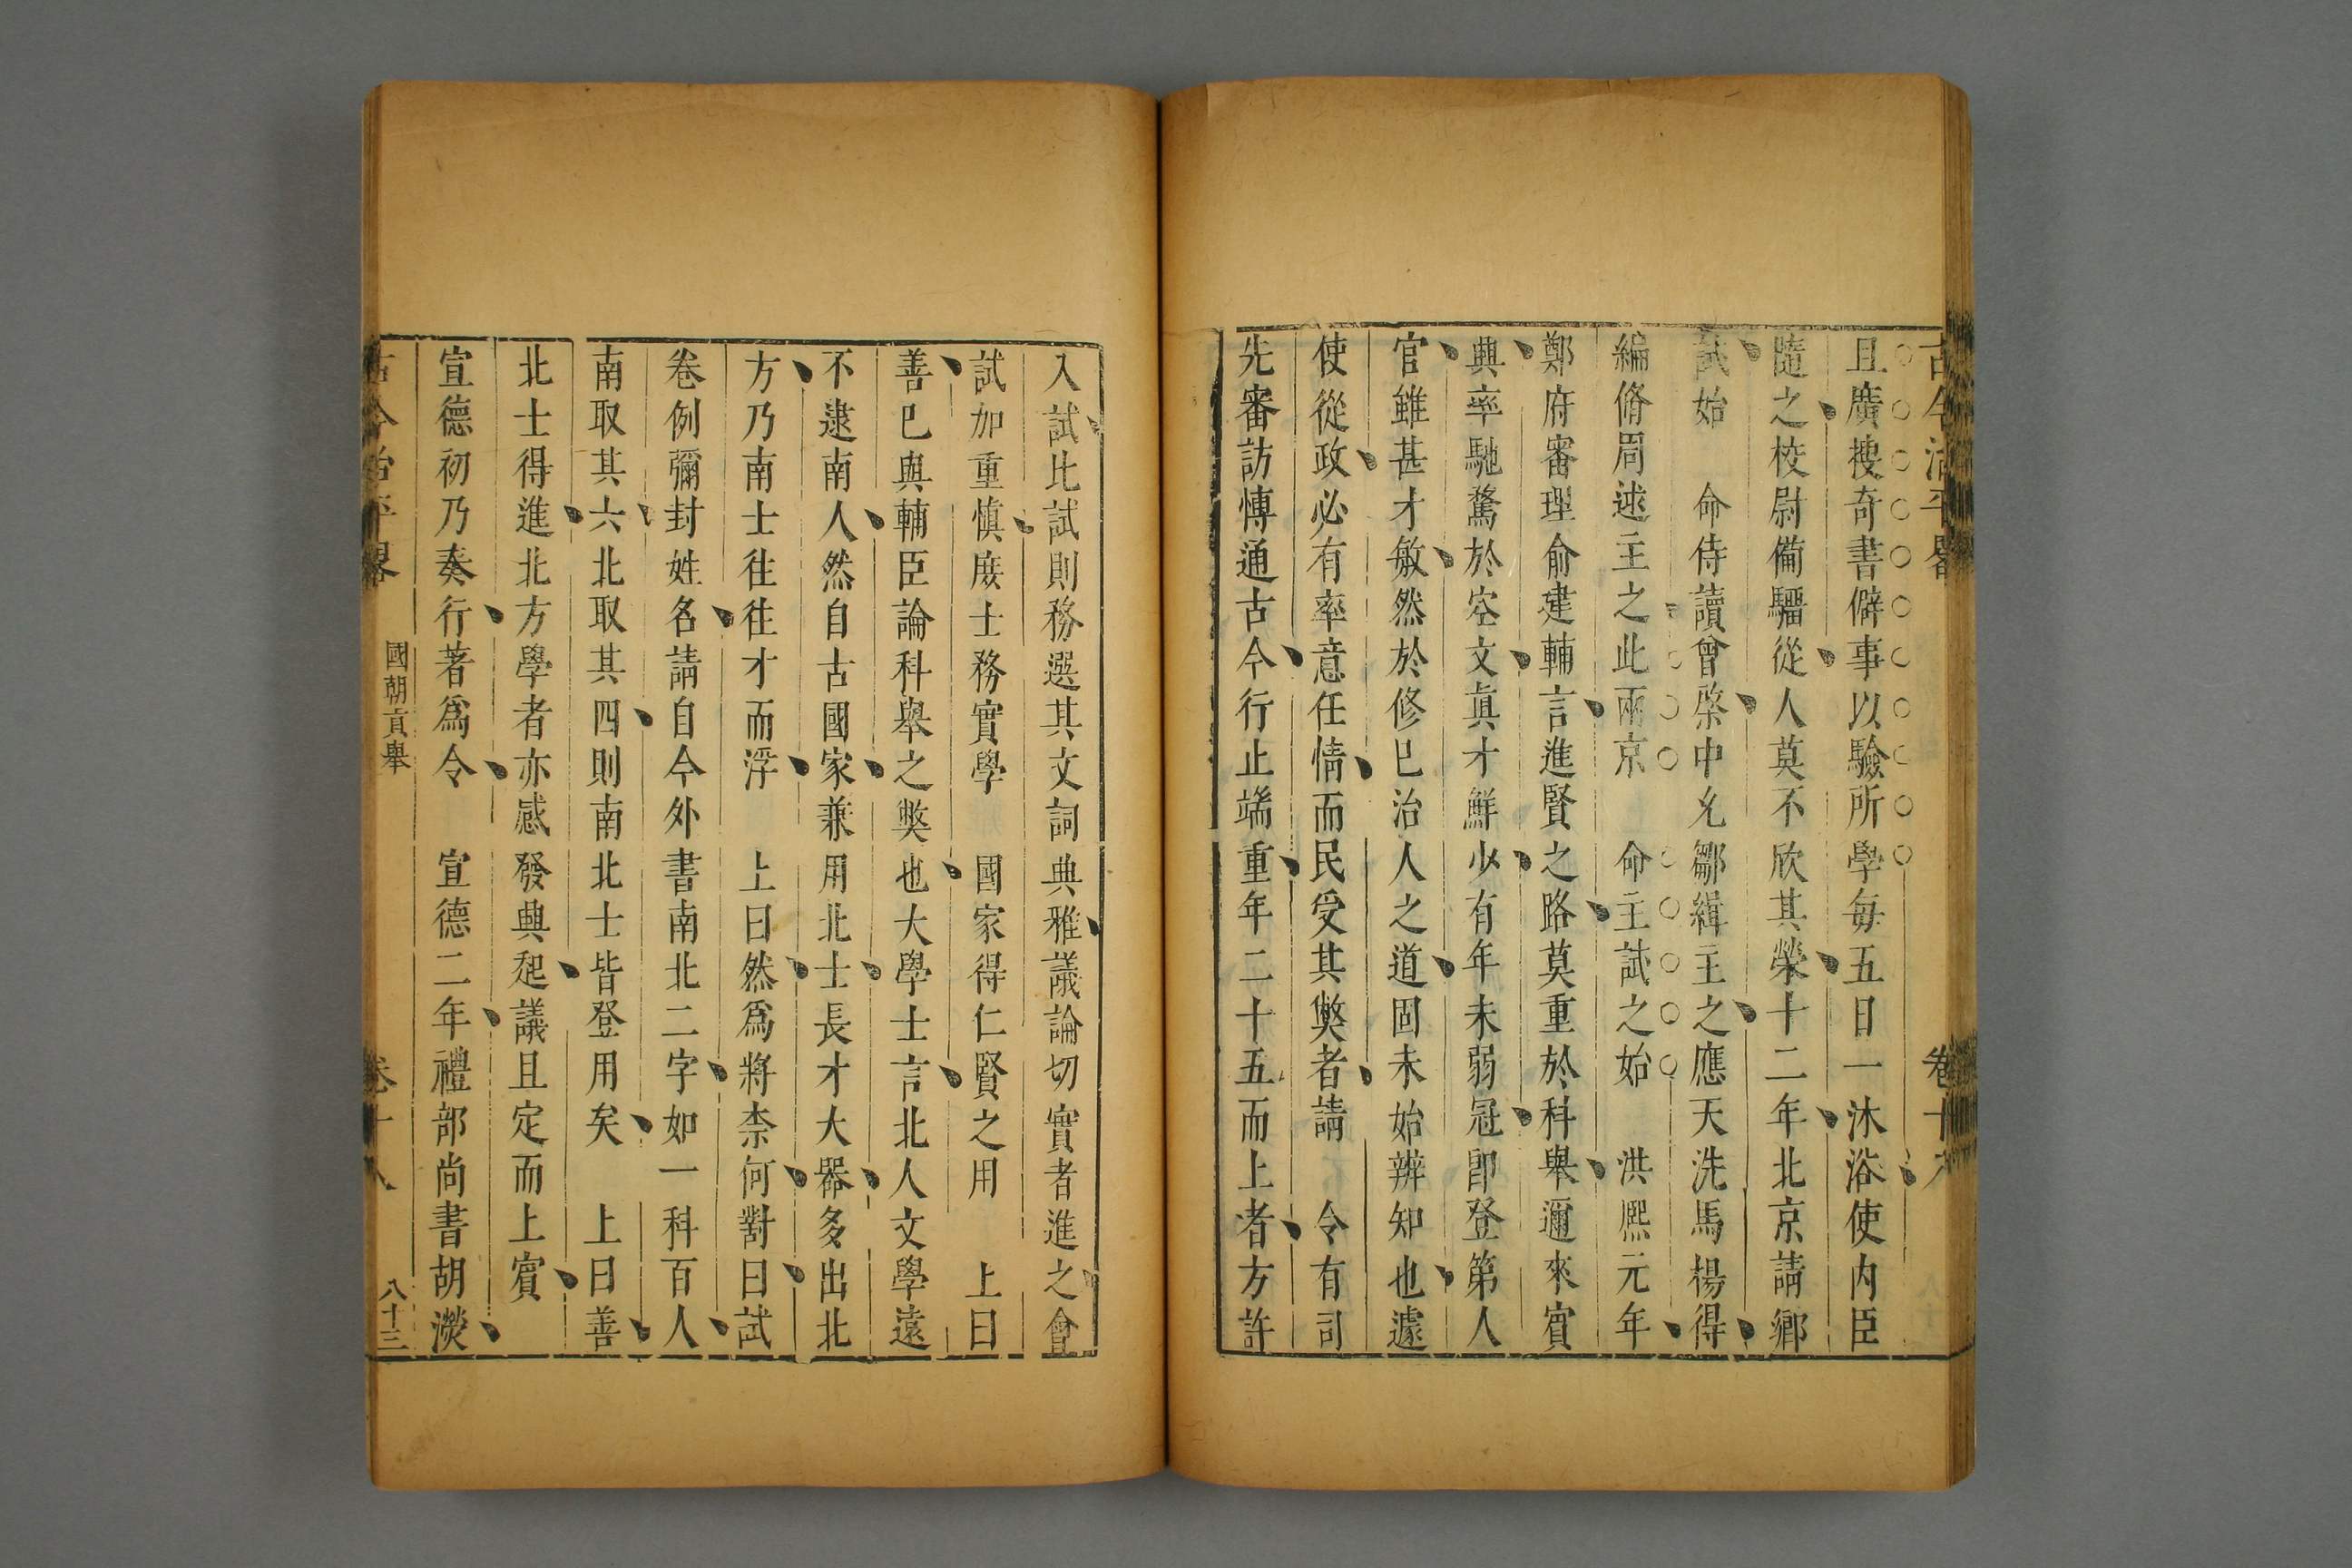 古今治平畧 卷十八
且廣搜奇書僻事以驗所學每五日一沐浴使内臣
隨之校尉備驅從人莫不欣其榮十二年北京請鄉
試始 命侍讀曾棨中允鄒緝主之應天洗馬楊得
編脩周述主之此兩京 命主試之始 洪熈元年
鄭府審理俞建輔言進賢之路莫重於科舉邇來賓
興率馳騖於空文真才鮮少有年未弱冠卽登第人
官雖甚才敏然於修已治人之道固未始辨知也遽
使從政必有率意任情而民受其獘者請 令有司
先審訪博通古今行止端重年二十五而上者方許
入試比試則務選其文詞典雅議論切實者進之會
試加重慎庻士務實學 國家得仁賢之用 上曰
善已與輔臣論科舉之獘也大學士言北人文學遠
不逮南人然自古國家兼用北士長才大器多出北
方乃南士往往才而浮 上曰然爲將柰何對曰試
卷例彌封姓名請自今外書南北二字如一科百人
南取其六北取其四則南北士皆登用矣 上曰善
北士得進北方學者亦感發興起議且定而上賓
宣德初乃奏行著爲令 宣德二年禮部尚書胡濙
古今治平畧 國朝貢舉 卷十八 八十三